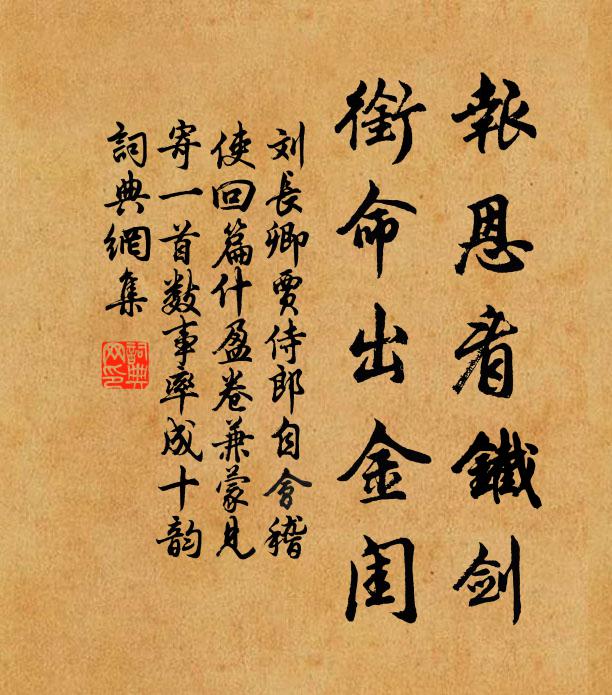 報恩看鐵剑
銜命出金闺
刘長卿賈侍郎自會稽
使回篇什盈卷兼蒙見
寄一首数事率成十韵
詞典網集
詞典网印